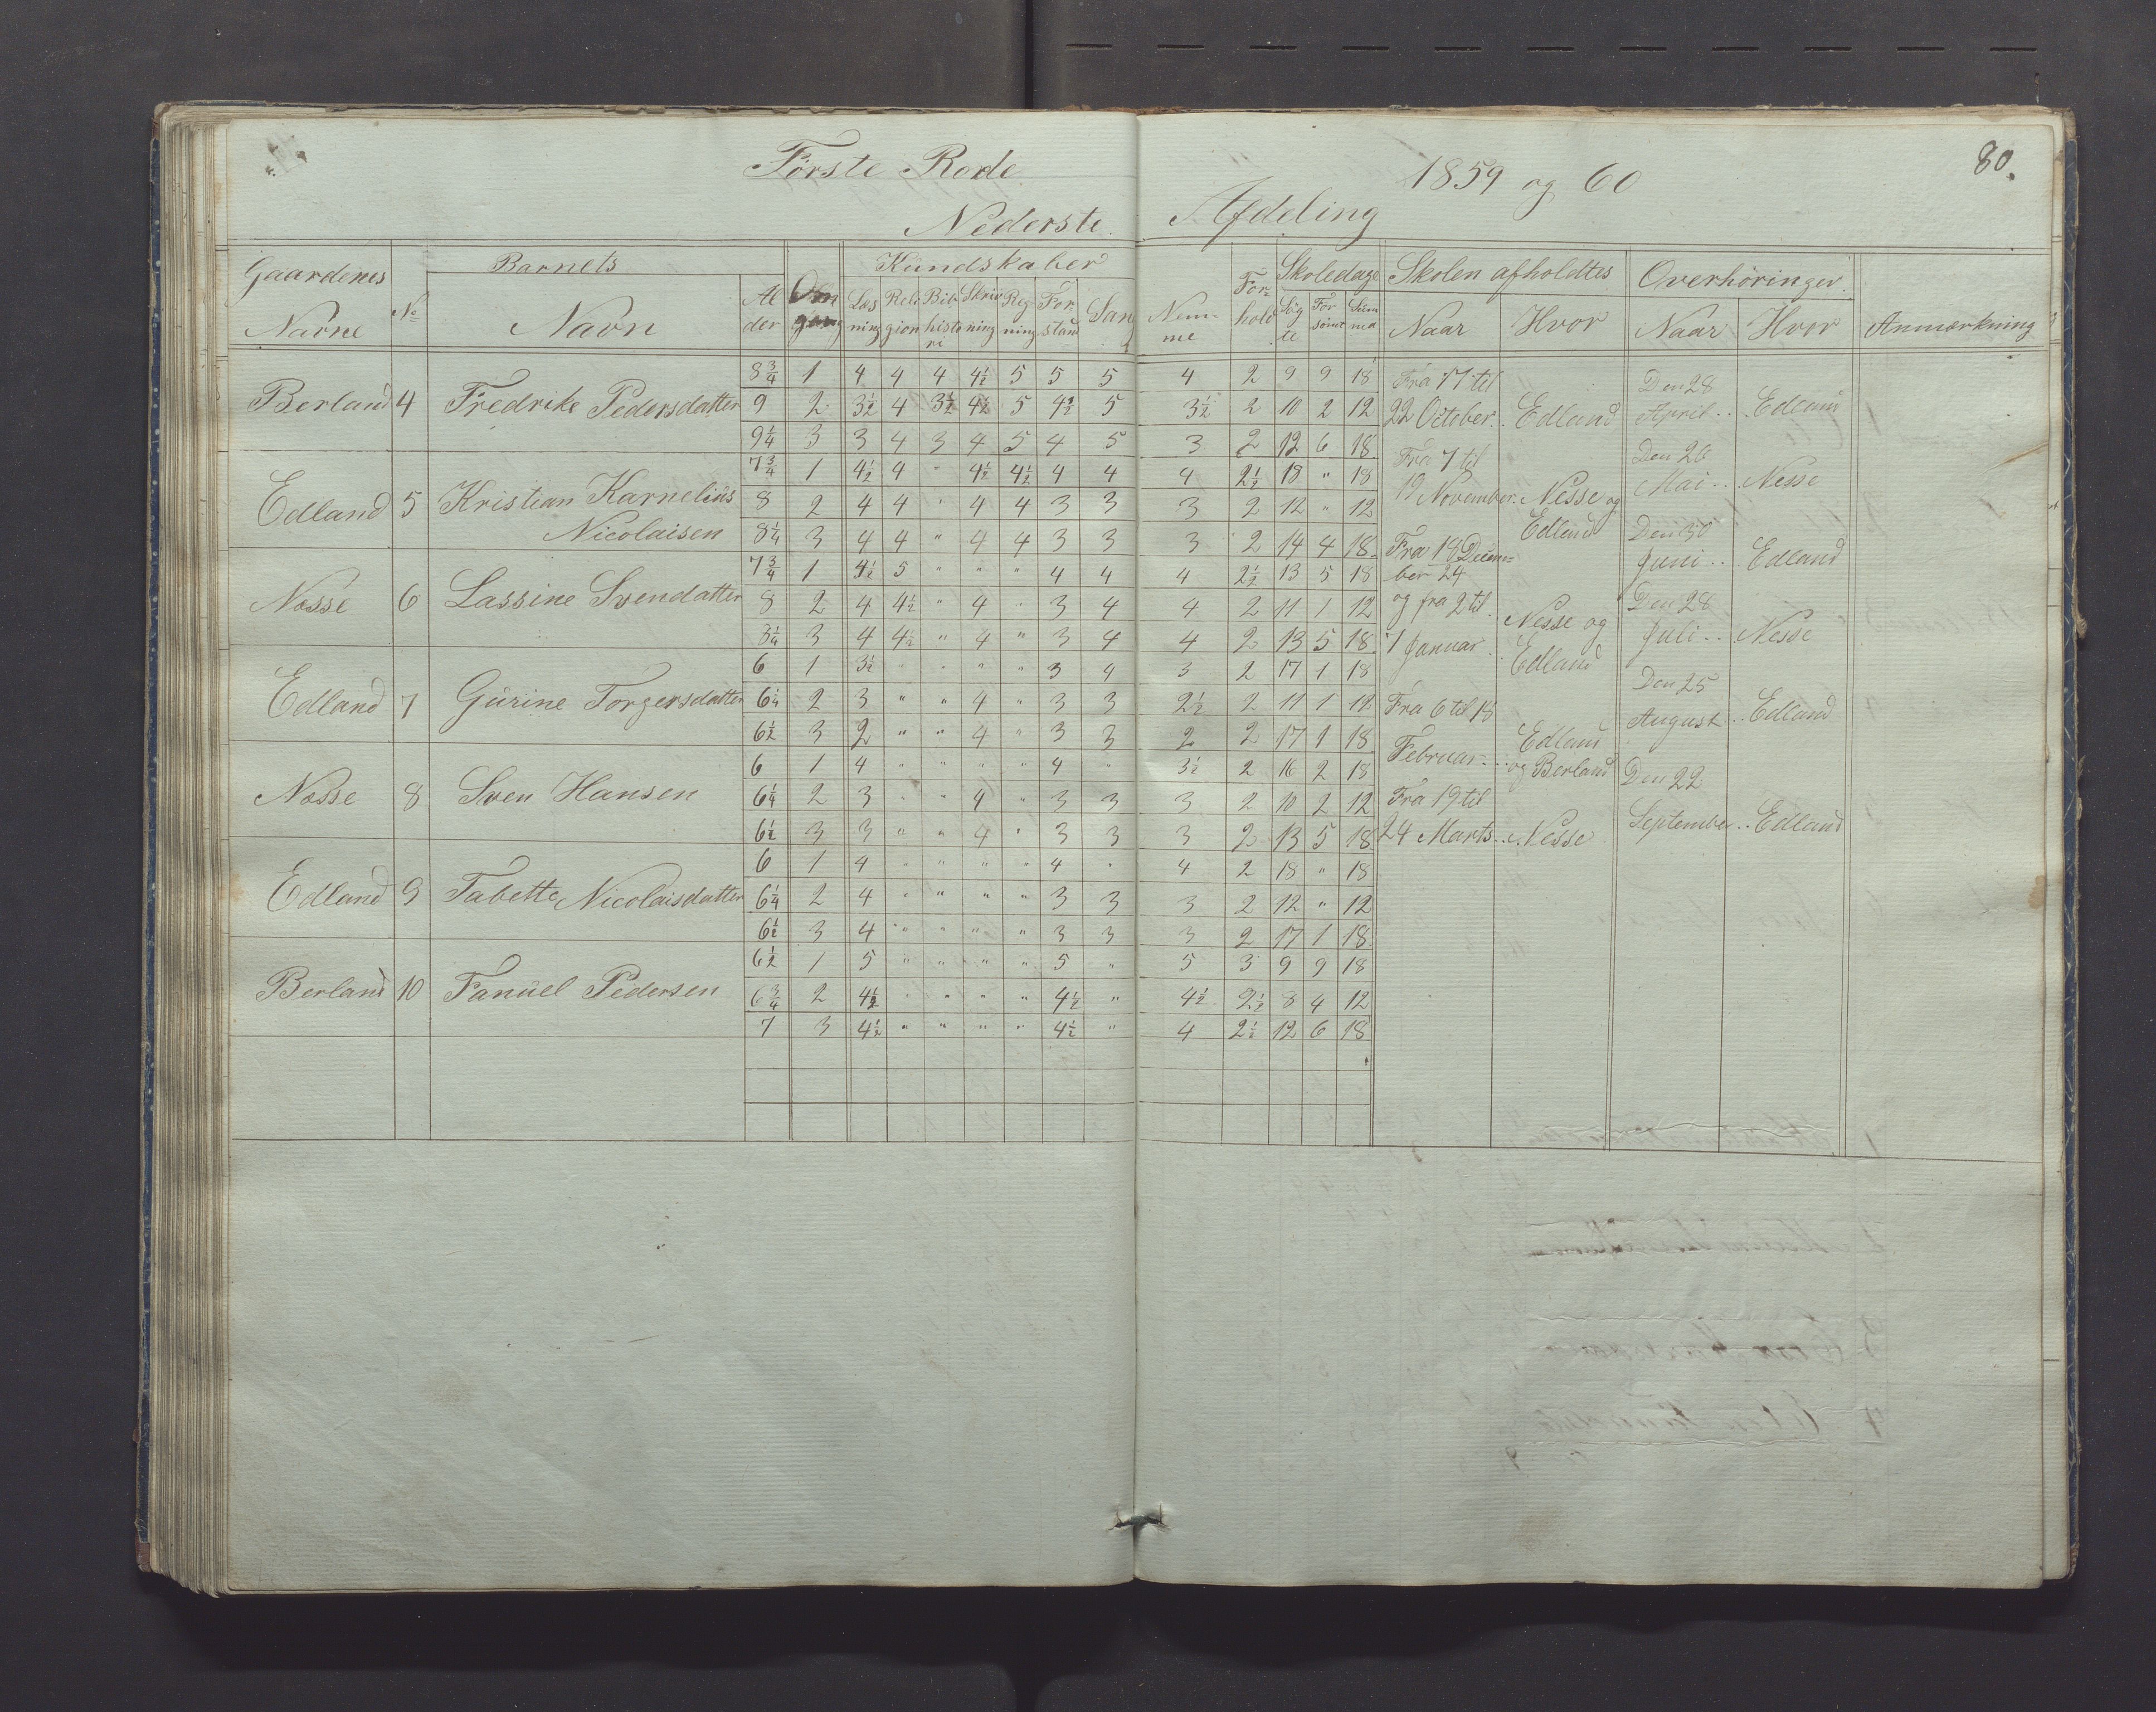 80.
Første Rode 1859 og 60
Nederste Afdeling
Gaardenes Navne | No | Barnets Navn | Alder | Omgang | Kundskaber: Læsning | Religion | Bib histori | Skrivning | Regning | Forstand | Sang | Nemme | Forhold | Skoledage: Søgte | Forsømt | Summa | Skolen afholdtes Naar | Hvor | Overhøringer. Naar | Hvor | Anmærkning
Berland 4 Fredrike Pedersdatter
8 3/4 1 4 4 4 4 1/2 5 5 5 4 2 9 9 18
9 2 3 1/2 4 3 1/2 4 1/2 5 4 1/2 5 3 1/2 2 10 2 12
9 1/4 3 3 4 3 4 5 4 5 3 2 12 6 18
Edland 5 Kristian Karnelius
Nicolaisen
7 3/4 1 4 1/2 4 " 4 1/2 4 1/2 4 4 4 2 1/2 18 " 18
8 2 4 4 " 4 4 3 3 3 2 12 " 12
8 1/4 3 4 4 " 4 4 3 3 3 2 14 4 18
Nesse 6 Lassine Svendatter
7 3/4 1 4 1/2 5 " " " 4 4 4 2 1/2 13 5 18
8 2 4 4 1/2 " 4 " 3 4 4 2 11 1 12
3 1/4 3 4 4 1/2 " 4 " 3 4 4 2 13 5 18
Edland 7 Gurine Torgersdatter
6 1 3 1/2 " " " " 3 4 3 2 17 1 18
6 1/4 2 3 " " 4 " 3 3 2 1/2 2 11 1 12
6 1/2 3 2 " " 4 " 3 3 2 2 17 1 18
Nesse 8 Sven Hansen
6 1 4 " " " " 4 " 3 1/2 2 16 2 18
6 1/4 2 3 " " 4 " 3 3 3 2 10 2 12
6 1/2 3 3 " " 4 " 3 3 3 2 13 5 18
Edland 9 Tabette Nicolaisdatter
6 1 4 " " " " 4 " 4 2 18 " 18
6 1/4 2 4 " " " " 3 3 3 2 12 " 12
6 1/2 3 4 " " " " 3 3 3 2 17 1 18
Berland 10 Fanuel Pedersen
6 1/2 1 5 " " " " 5 " 5 3 9 9 18
6 3/4 2 4 1/2 " " " " 4 1/2 " 4 1/2 2 1/2 8 4 12
7 3 4 1/2 " " " " 4 1/2 " 4 2 1/2 12 6 18
Fra 17 til
22 October. Edland
Fra 7 til
19 November. Nesse og
Edland
Fra 19 Decem=
ber 24
og fra 2 til
7 Januar. Nesse og
Edland
Fra 6 til 18
Februar Edland
og Berland
Fra 19 til
24 Marts. Nesse
Den 28
April Edland
Den 26
Mai Nesse
Den 30
Juni Edland
Den 28
Juli Nesse
Den 25
August Edland
Den 22
September Edland